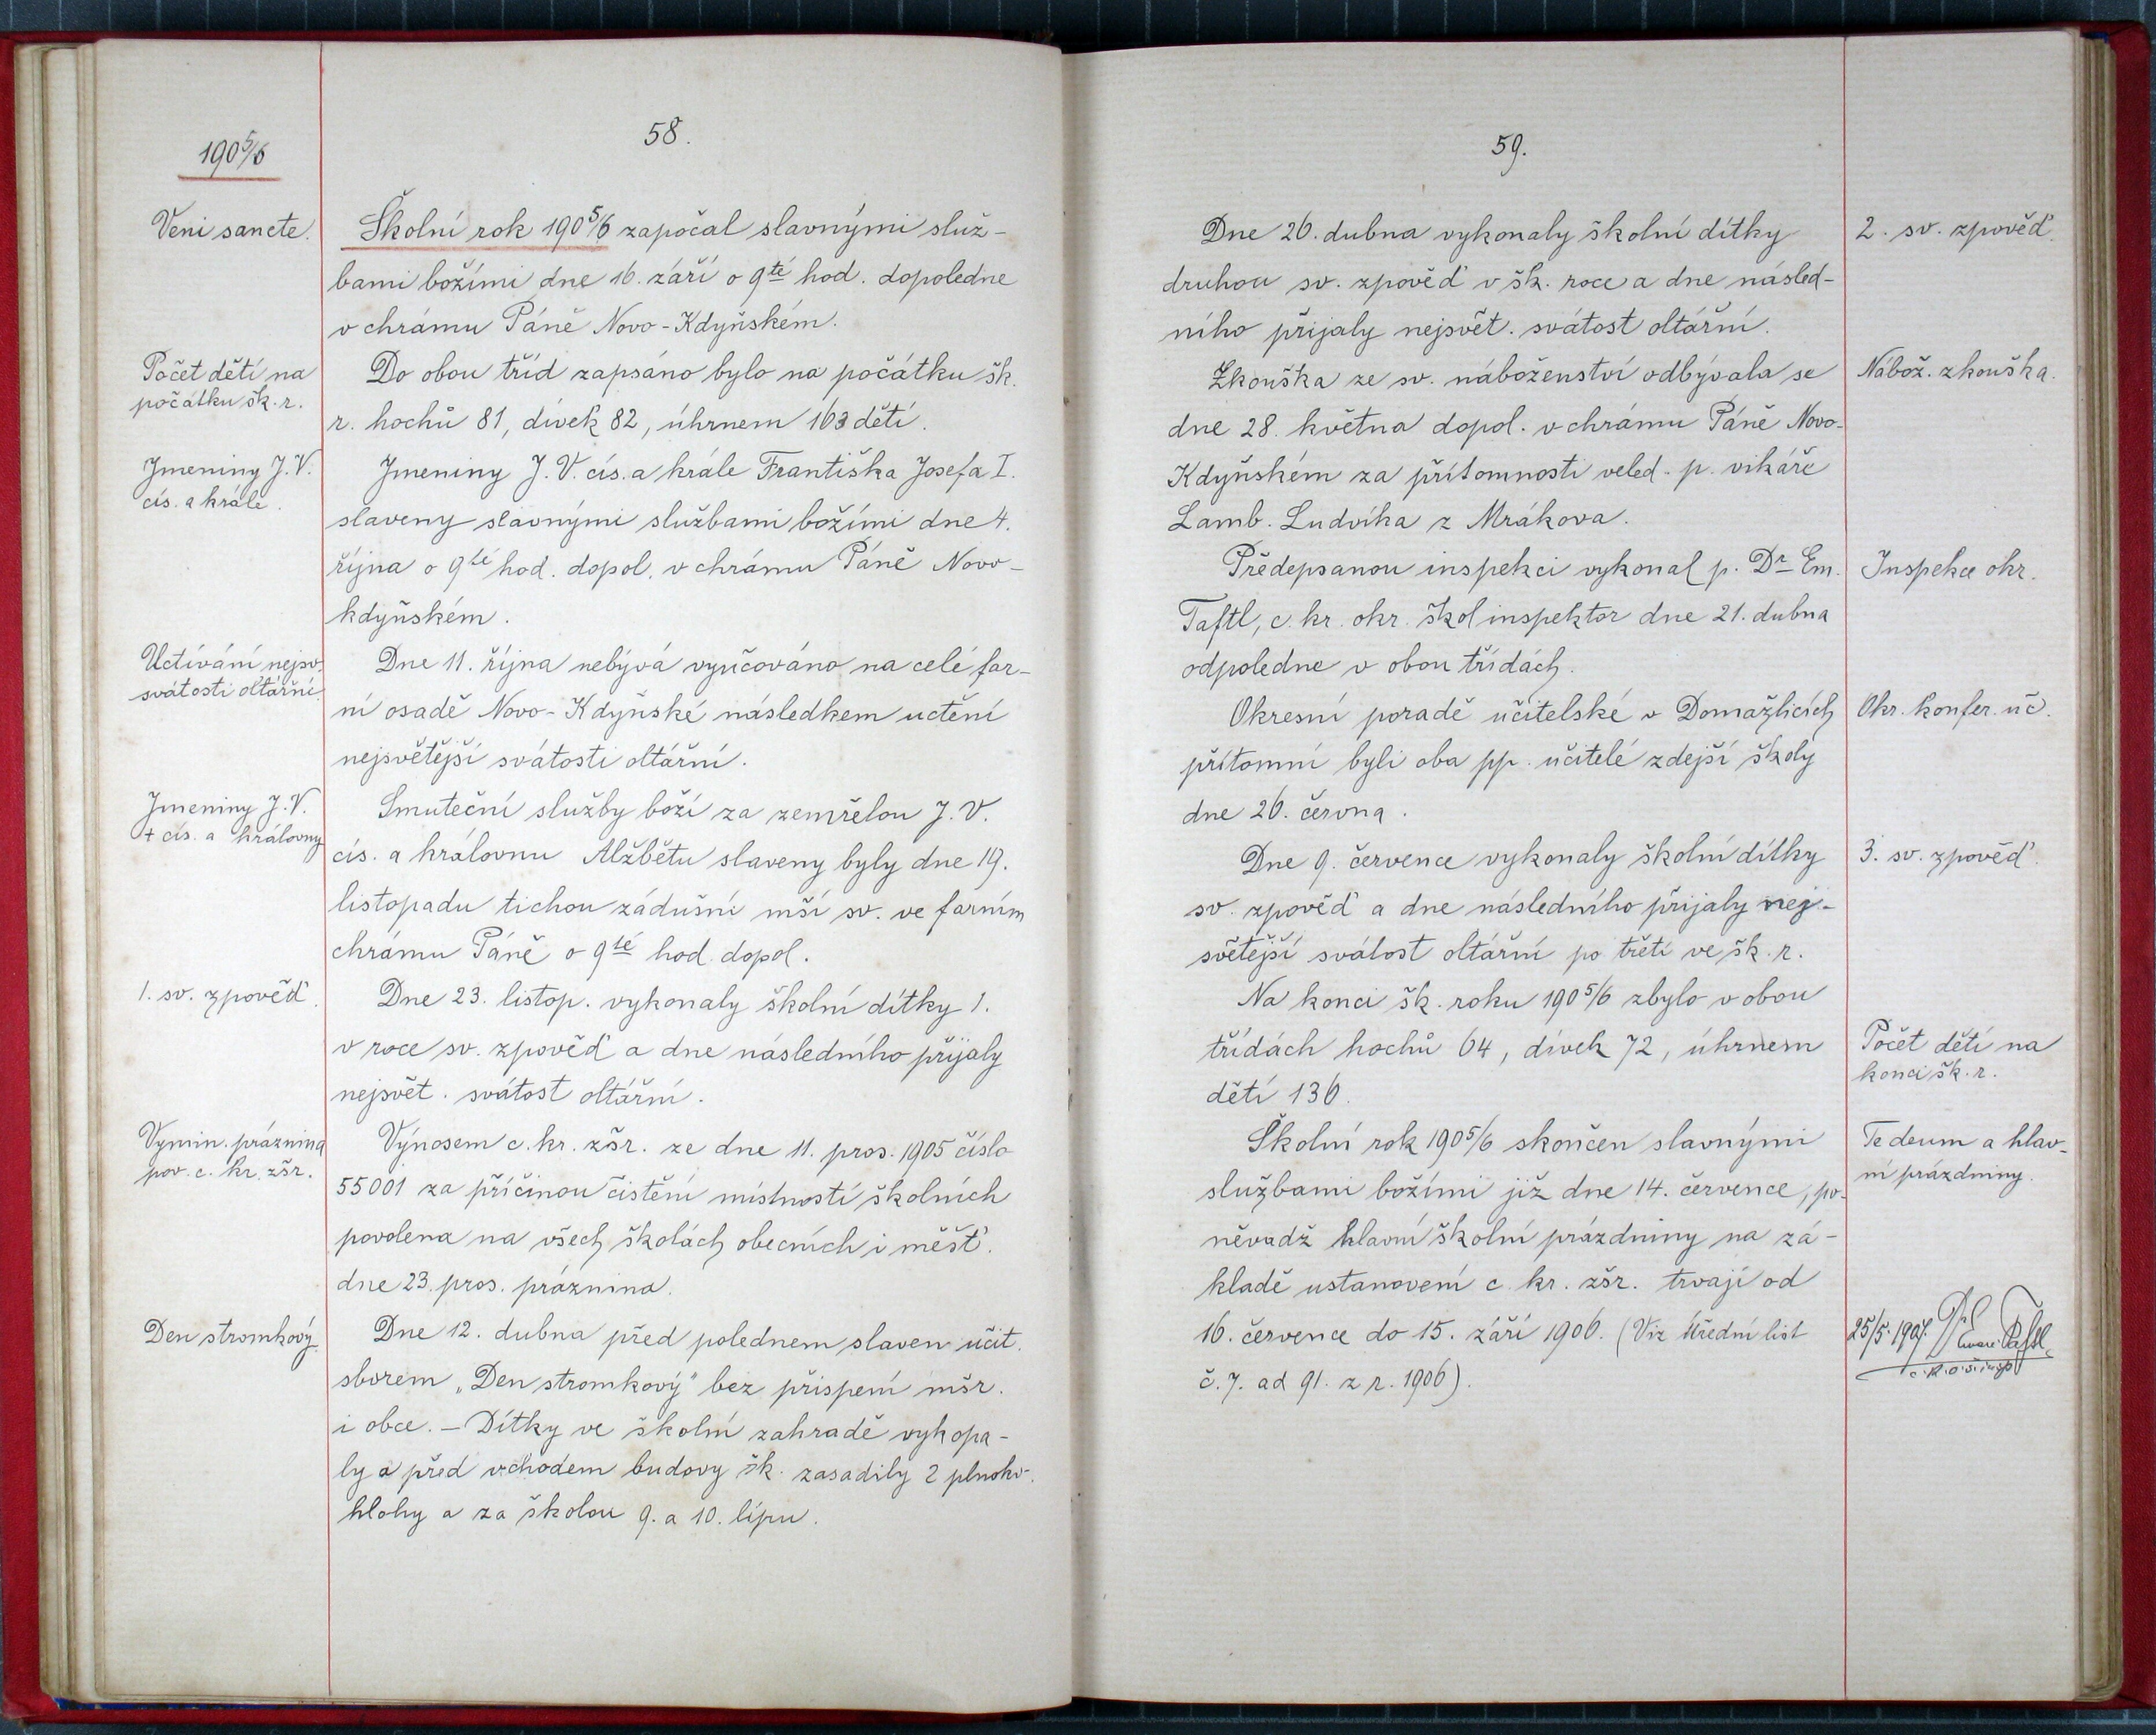 58.
190 5/6
Veni sancte.
Školní rok 190 5/6 započal slavnými služ-
bami božími dne 16. září o 9té hod. dopoledne
v chrámu Páně Novo-Kdyňském.
Počet dětí na
počátku šk. r.
Do obou tříd zapsáno bylo na počátku šk.
r. hochů 81, dívek 82, úhrnem 163 dětí.
Jmeniny J. V.
cís. a krále.
Jmeniny J. V. cís. a krále Františka Josefa I.
slaveny slavnými službami božími dne 4.
října o 9té hod. dopol. v chrámu Páně Novo-
kdyňském.
Uctívání nejsv.
svátosti oltářní.
Dne 11. října nebývá vyučováno na celé far-
ní osadě Novo-Kdyňské následkem uctění
nejsvětější svátosti oltářní.
Jmeniny J. V.
+ cís. a královny
Smuteční služby boží za zemřelou J. V.
cís. a královnu Alžbětu slaveny byly dne 19.
listopadu tichou zádušní mší sv. ve farním
chrámu Páně o 9té hod. dopol.
1. sv. zpověď.
Dne 23. listop. vykonaly školní dítky 1.
v roce sv. zpověď a dne následního přijaly
nejsvět. svátost oltářní.
Vymin. práznina
pov. c. kr. zšr.
Výnosem c. kr. zšr. ze dne 11. pros. 1905 číslo
55001 za příčinou čistění místností školních
povolena na všech školách obecních i měšť.
dne 23. pros. práznina.
Den stromkový.
Dne 12. dubna před polednem slaven učit.
sborem „Den stromkový" bez přispení mšr.
i obce. – Dítky ve školní zahradě vykopa-
ly a před vchodem budovy šk. zasadily 2 plnokv.
hlohy a za školou 9. a 10. lípu.
59.
Dne 26. dubna vykonaly školní dítky
druhou sv. zpověď v šk. roce a dne násled-
ního přijaly nejsvět. svátost oltářní.
2. sv. zpověď.
Zkouška ze sv. náboženství odbývala se
dne 28. května dopol. v chrámu Páně Novo-
Kdyňském za přítomnosti veled. p. vikáře
Lamb. Ludvíka z Mrákova.
Nábož. zkouška.
Předepsanou inspekci vykonal p. Dr Em.
Taftl, c. kr. okr. škol inspektor dne 21. dubna
odpoledne v obou třídách.
Inspekce okr.
Okresní poradě učitelské v Domažlicích
přítomni byli oba pp. učitelé zdejší školy
dne 26. června.
Okr. konfer. uč.
Dne 9. července vykonaly školní dítky
sv. zpověď a dne následního přijaly nej-
světější svátost oltářní po třetí ve šk. r.
3. sv. zpověď.
Na konci šk. roku 190 5/6 zbylo v obou
třídách hochů 64, dívek 72, úhrnem
dětí 136.
Počet dětí na
konci šk. r.
Školní rok 190 5/6 skončen slavnými
službami božími již dne 14. července, po-
něvadž hlavní školní prázdniny na zá-
kladě ustanovení c. kr. zšr. trvají od
16. července do 15. září 1906. (Viz Úřední list
č. 7. ad 91. z r. 1906).
Te deum a hlav-
ní prázdniny.
25/5. 1907. Dr Taftl